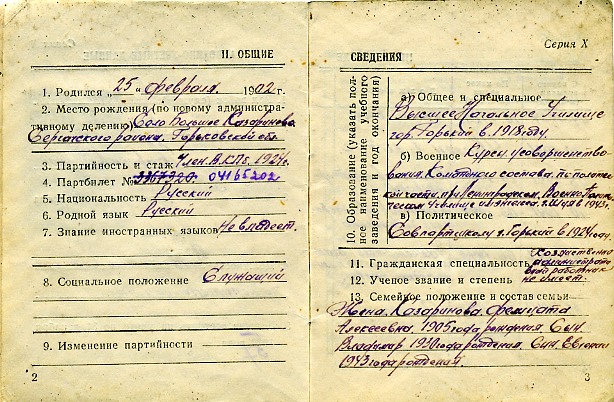 II. ОБЩИЕ
1. Родился „25" февраля 1902 г.
2. Место рождения (по новому административному делению) Село Большое Казариново
Сергачского района, Горьковской обл.
3. Партийность и стаж Член В.К.П.б. 1924г.
4. Партбилет № 04165202
5. Национальность Русский
6. Родной язык Русский
7. Знание иностранных языков Не владеет.
8. Социальное положение Служащий
9. Изменение партийности
2
Серия X
СВЕДЕНИЯ
10. Образование (указать полное наименование учебного заведения и год окончания)
а) Общее и специальное
Высшее Начальное Училище
гор. Горький в 1918 году.
б) Военное Курсы усовершенство
вания Ком[...] состава, по полити
ческой части, при Ленинградском, Военно
училище г. Шуя в 1943.
в) Политическое
Совпартшколу г. Горький в 1924 году.
11. Гражданская специальность хозяйственно
административный
работник
12. Ученое звание и степень не имеет.
13. Семейное положение и состав семьи
Жена, Казаринова, Фелицата
Алексеевна, 1905 года рождения. Сын
Владимир 1930 года рождения. Сын Евгений
1943 года рождения.
3